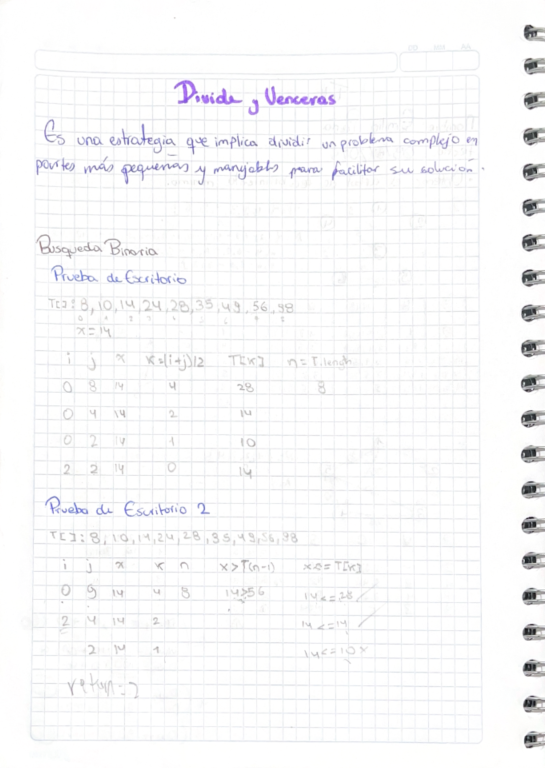 Divide y Venceras
Es una estrategia que implica dividir un problema complejo en
partes más pequeñas y manejables para facilitar su solución.
Busqueda Binaria
Prueba de Escritorio
T[]: 8, 10, 14, 24, 28, 35, 49, 56, 98
x=14
i j x K=(i+j)/2 T[K] n=T.length
0 8 14 4 28 8
0 4 14 2 14
0 2 14 1 10
2 2 14 0 14
Prueba de Escritorio 2
T[]: 8, 10, 14, 24, 28, 35, 49, 56, 98
i j x K n x>T(n-1) x<=T[K]
0 9 14 4 8 14>56 14<=28
2 4 14 2 14<=14
2 14 1 14<=10x